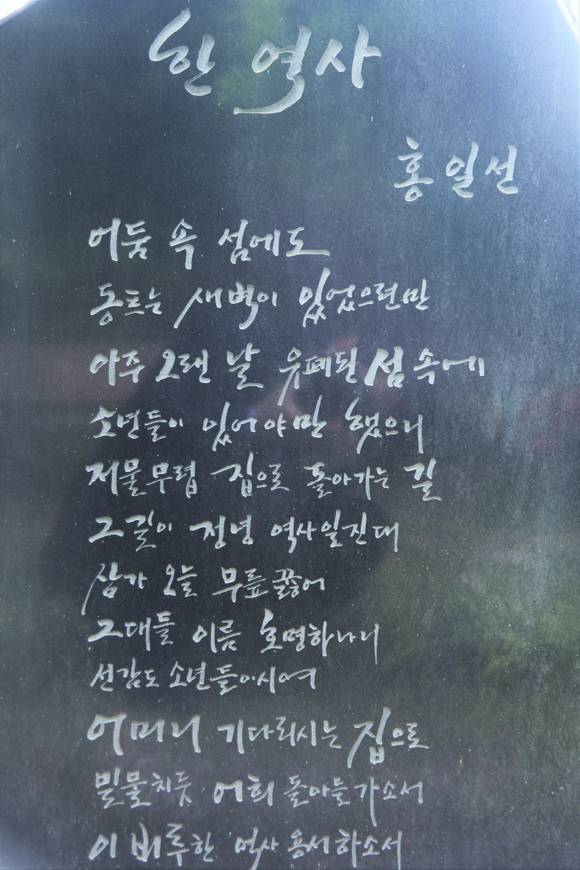 한 역사
홍일선
어둠 속 섬에도
동트는 새벽이 있었으련만
아주 오랜 날 유폐된 섬 속에
소년들이 있어야만 했으니
저물무렵 집으로 돌아가는 길
그길이 정녕 역사일진대
삼가 오늘 무릎 꿇어
그대들 이름 호명하나니
선감도 소년들이시여
어머니 기다리시는 집으로
밀물치듯 어희 돌아들가소서
이 비루한 역사 용서하소서